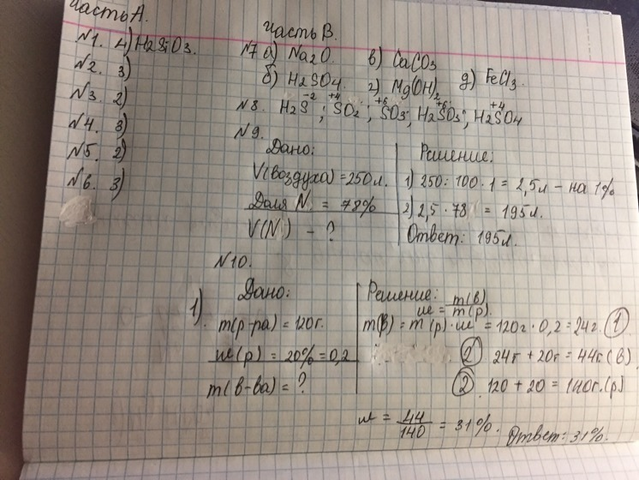 Часть А.
N1. 4) H2SiO3.
N2. 3)
N3. 2)
N4. 3)
N5. 2)
N6. 3)
Часть В.
N7 а) Na2O в) CaCO3
б) H2SO4. г) Mg(OH)2 д) FeCl3.
N8. H2S⁻², S⁺⁴O2, S⁺⁶O3, H2S⁺⁶O3, H2S⁺⁴O4
N9.
Дано:
V(воздуха) = 250л.
Доля N = 78%
V(N) - ?
Решение:
1) 250 : 100 · 1 = 2,5л - на 1%
2) 2,5 · 78 = 195л.
Ответ: 195л.
N10.
1) Дано:
m(р-ра) = 120г.
w(р) = 20% = 0,2
m(в-ва) = ?
Решение: w = m(в)/m(р).
m(в) = m(р) · w = 120г · 0,2 = 24г. 1
2 24г + 20г = 44г(в)
2. 120 + 20 = 140г.(р)
w = 44/140 = 31%. Ответ: 31%.